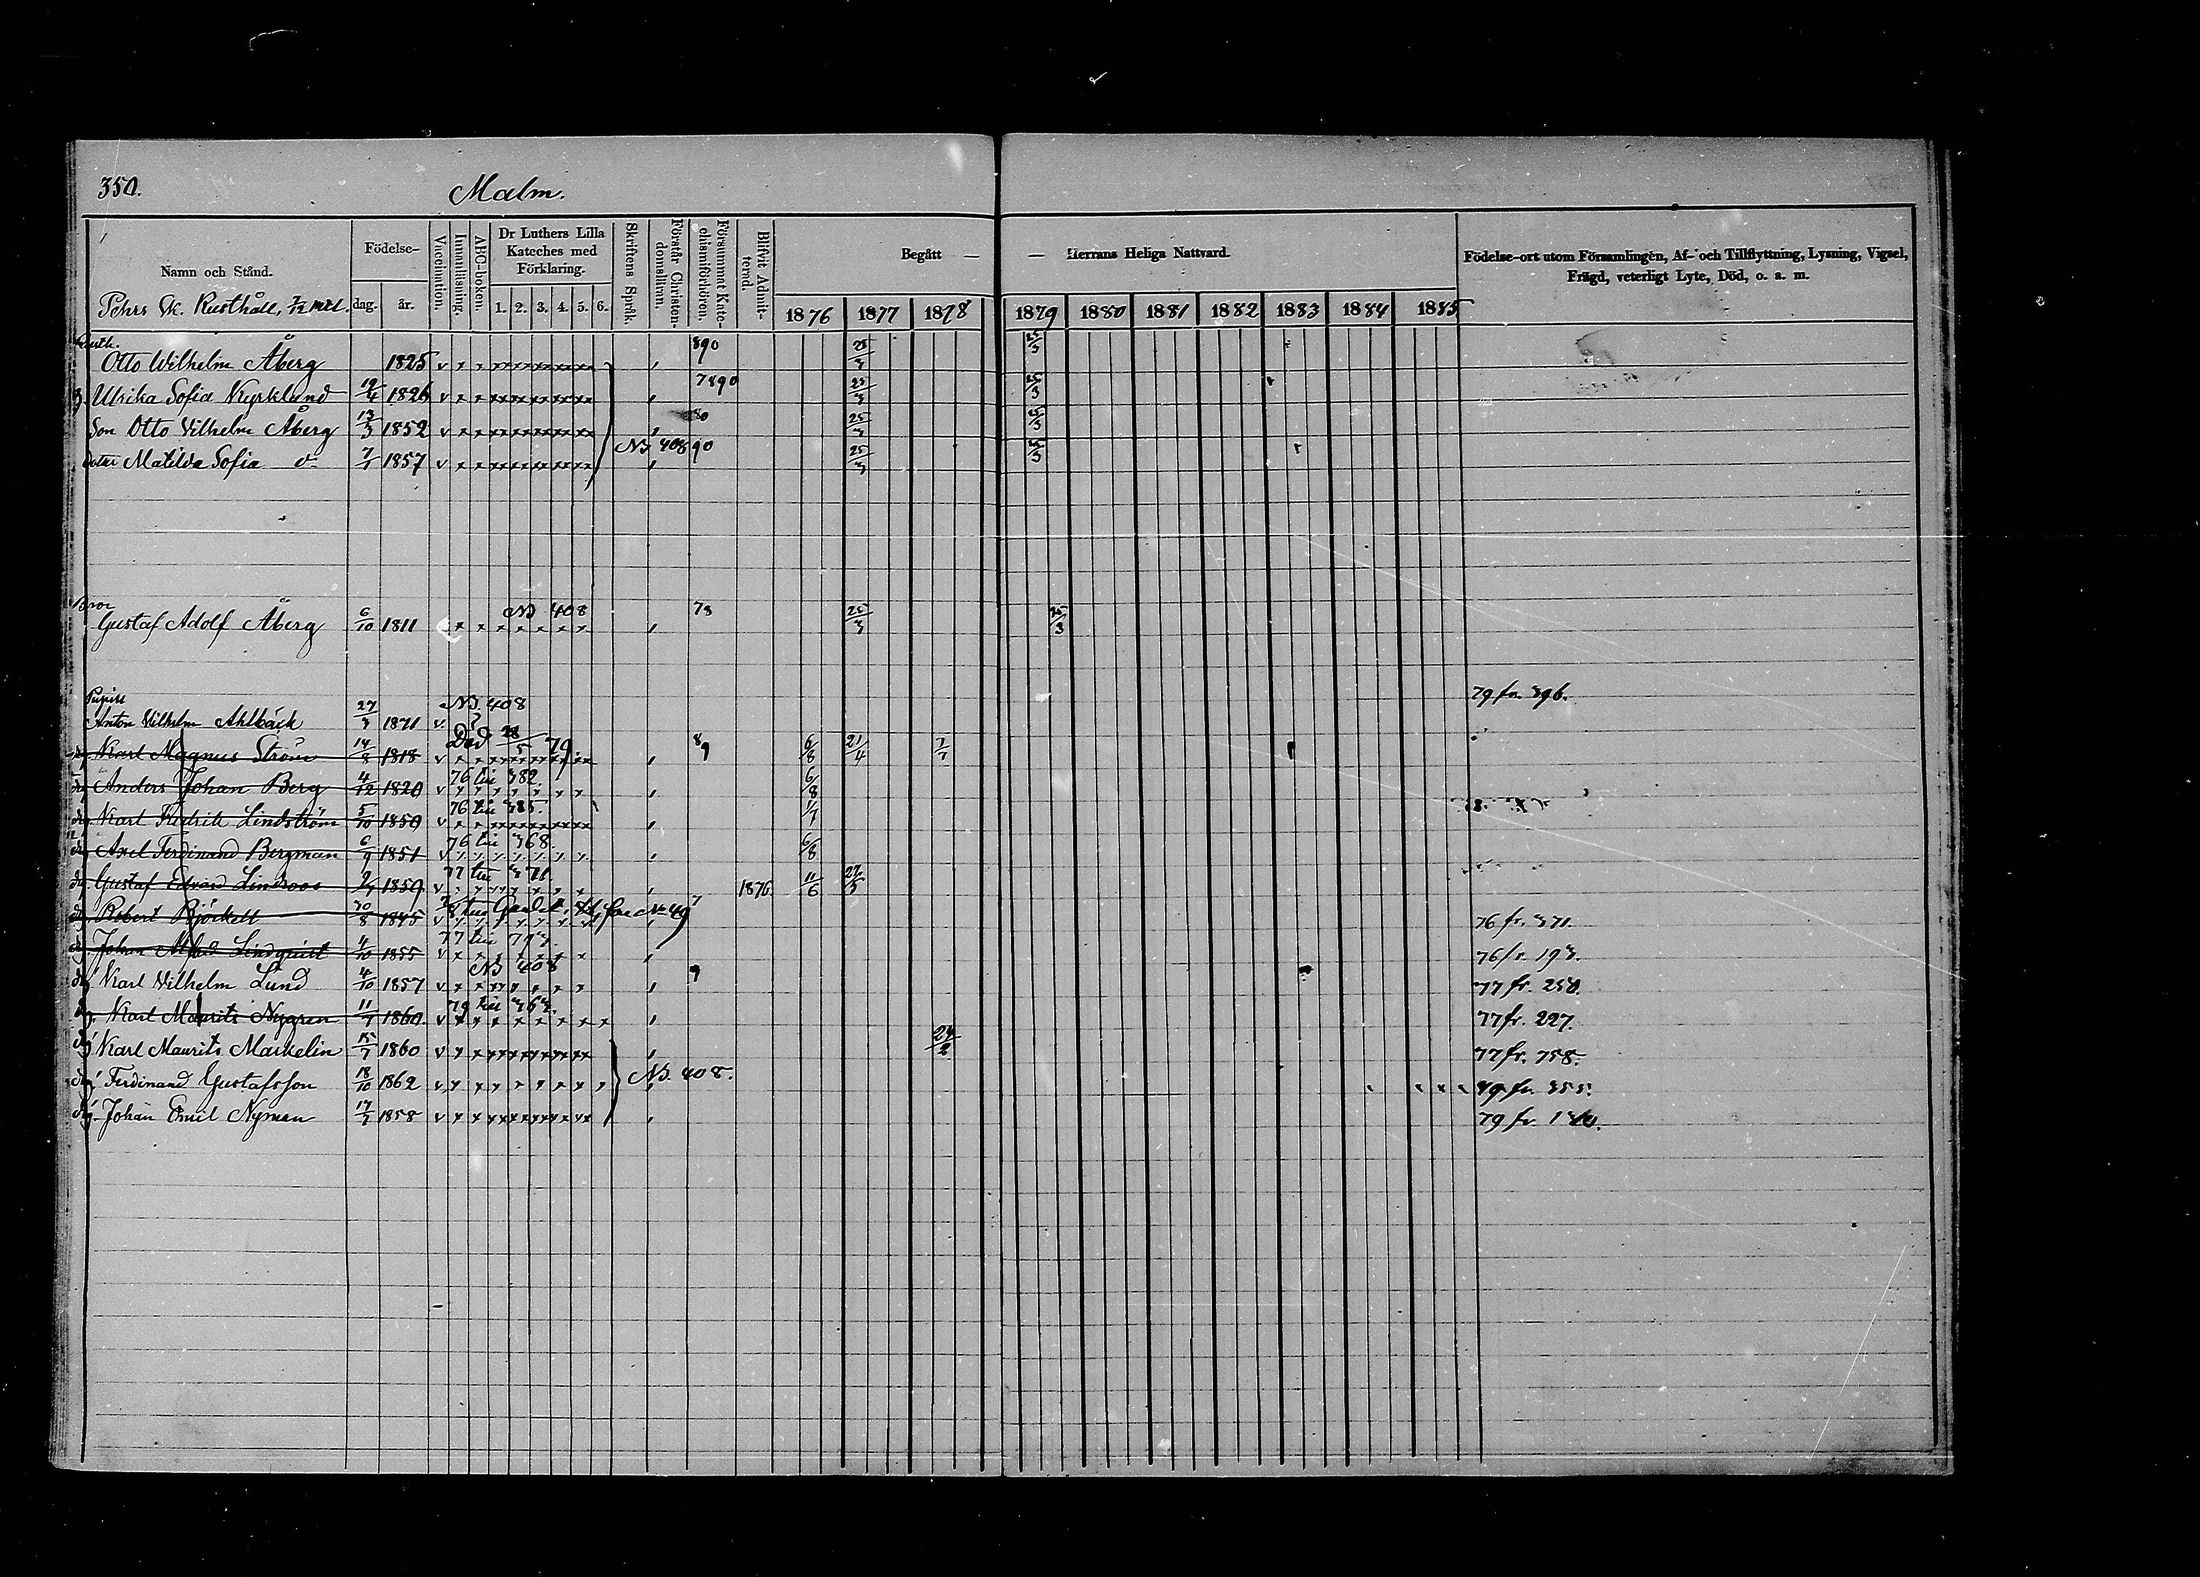 350.
Malm.
Namn och Stånd.
Födelse-
dag. år.
Vaccination.
Innanläsning.
ABC-boken.
Dr Luthers Lilla Kateches med Förklaring.
1. 2. 3. 4. 5. 6.
Skriftens Språk.
Förstår Christendomsläran.
Försummat Katechismiförhören.
Blifvit Admitterad.
Begått — — Herrans Heliga Nattvard.
1876 1877 1878 1879 1880 1881 1882 1883 1884 1885
Födelse-ort utom Församlingen, Af- och Tillflyttning, Lysning, Vigsel,
Frägd, veterligt Lyte, Död, o. a. m.
Rusthåll,
Otto Wilhelm Åberg 1825 890 25/3 25/3
Ulrika Sofia Kyrklund 19/4 1826 7890 25/3 25/3
Son Otto Vilhelm Åberg 13/3 1852 80 25/3 25/3
Matilda Sofia d:o 7/1 1857 NB 408 90 25/3 25/3
Bror
Gustaf Adolf Åberg 6/10 1811 NB 408 78 25/3 25/3
Anton Vilhelm Ahlbäck 27/3 1871 NB. 408 79 fr. 396.
Karl Magnus Ström 14/8 1818 Död 28/5 79. 89 6/8 21/4 7/7
Anders Johan Berg 4/12 1820 76 till 382 6/8
Karl Fredrik Lindström 5/10 1850 76 till 385. 1/7
Axel Ferdinand Bergman 6/9 1851 76 till 368. 6/8
Gustaf Edvard Lindroos 1859 77 till 371 1876 11/6
Robert Björkell 30/8 1845 76 fr. 371.
Johan Alfred Lindqvist 4/10 1855 77 till 76 fr. 193.
Karl Vilhelm Lund 4/10 1857 NB 408 9 77 fr. 250.
Karl Maurits Nygren 11/7 1860. 79 till 363. 77 fr. 227.
Karl Maurits Markelin 15/7 1860 24/2 77 fr. 758.
Ferdinand Gustafsson 18/10 1862 NB. 408. 79 fr. 355.
Johan Emil Nyman 17/7 1858 79 fr.